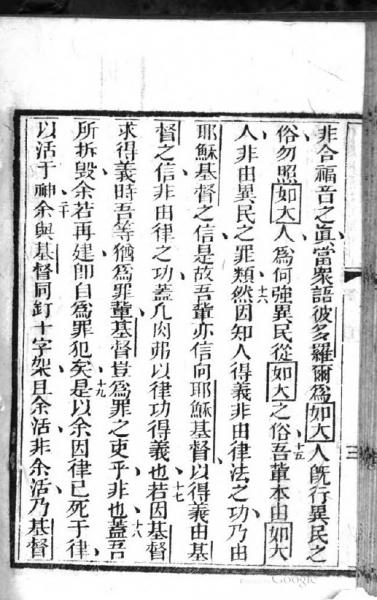 非合福音之眞當衆語彼多羅爾爲如大人旣行異民之
俗勿照如大人爲何強異民從如大之俗十五吾輩本由如大
人非由異民之罪類十六然因知人得義非由律法之功乃由
耶穌基督之信是故吾輩亦信向耶穌基督以得義由基
督之信非由律之功蓋凡肉弗以律功得義也十七若因基督
求得義時吾等猶爲罪輩基督豈爲罪之吏乎非也十八蓋吾
所拆毀余若再建卽自爲罪犯矣十九是以余因律已死于律
以活于神二十余與基督同釘十字架且余活非余活乃基督
三
Google